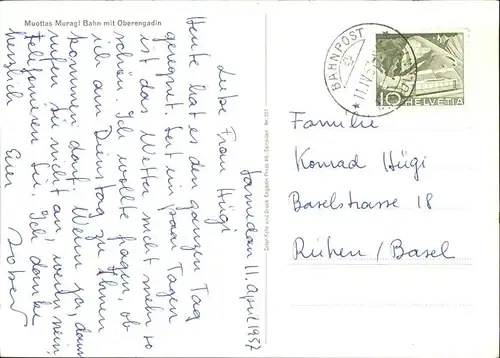 Muottas Muragl Bahn mit Oberengadin
Samedan 11. April 1957
Liebe Frau Hügi
Heute hat es den ganzen Tag
geregnet. Seit ein paar Tagen
ist das Wetter nicht mehr so
schön. Ich wollte fragen, ob
ich am Dienstag zu Ihnen
kommen darf. Wenn ja, dann
rufen Sie nicht an, wenn nein,
telefonieren Sie. Ich danke
herzlich
Euer
Robert
BAHNPOST
HELVETIA
10
Familie
Konrad Hügi
Baselstrasse 18
Riehen / Basel